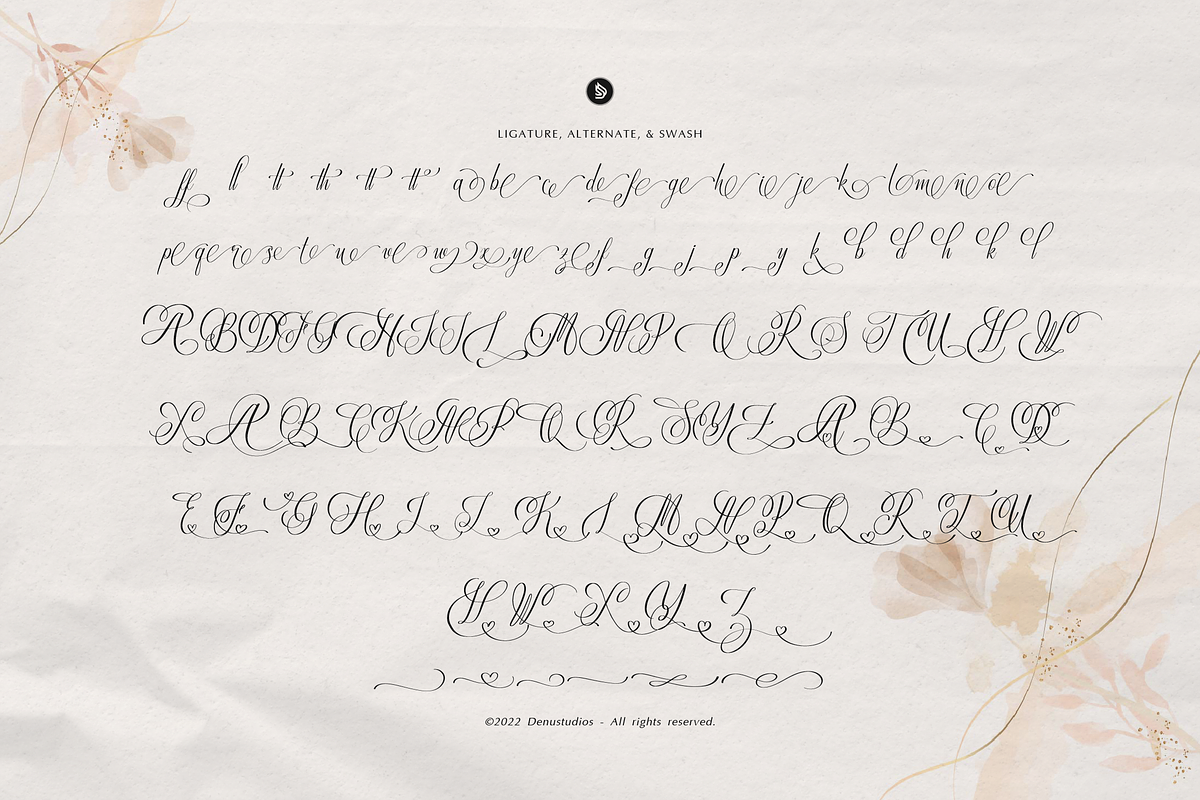 LIGATURE, ALTERNATE, & SWASH
ff ll tt th tt tt a b c d e f g h i j k l m n o
p q r s t u v w x y z f g j p y k b d h k l
A B D F G H I J L M N P Q R S T U V W
X A B C K N P Q R S Y Z A B C D
E F G H I J K L M N P Q R T U
V W X Y Z
©2022 Denustudios - All rights reserved.